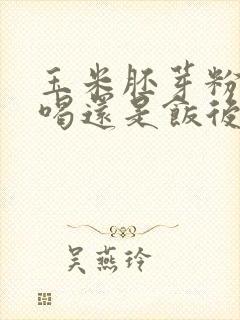 玉米胚芽粉
喝還是飯後
吳燕玲